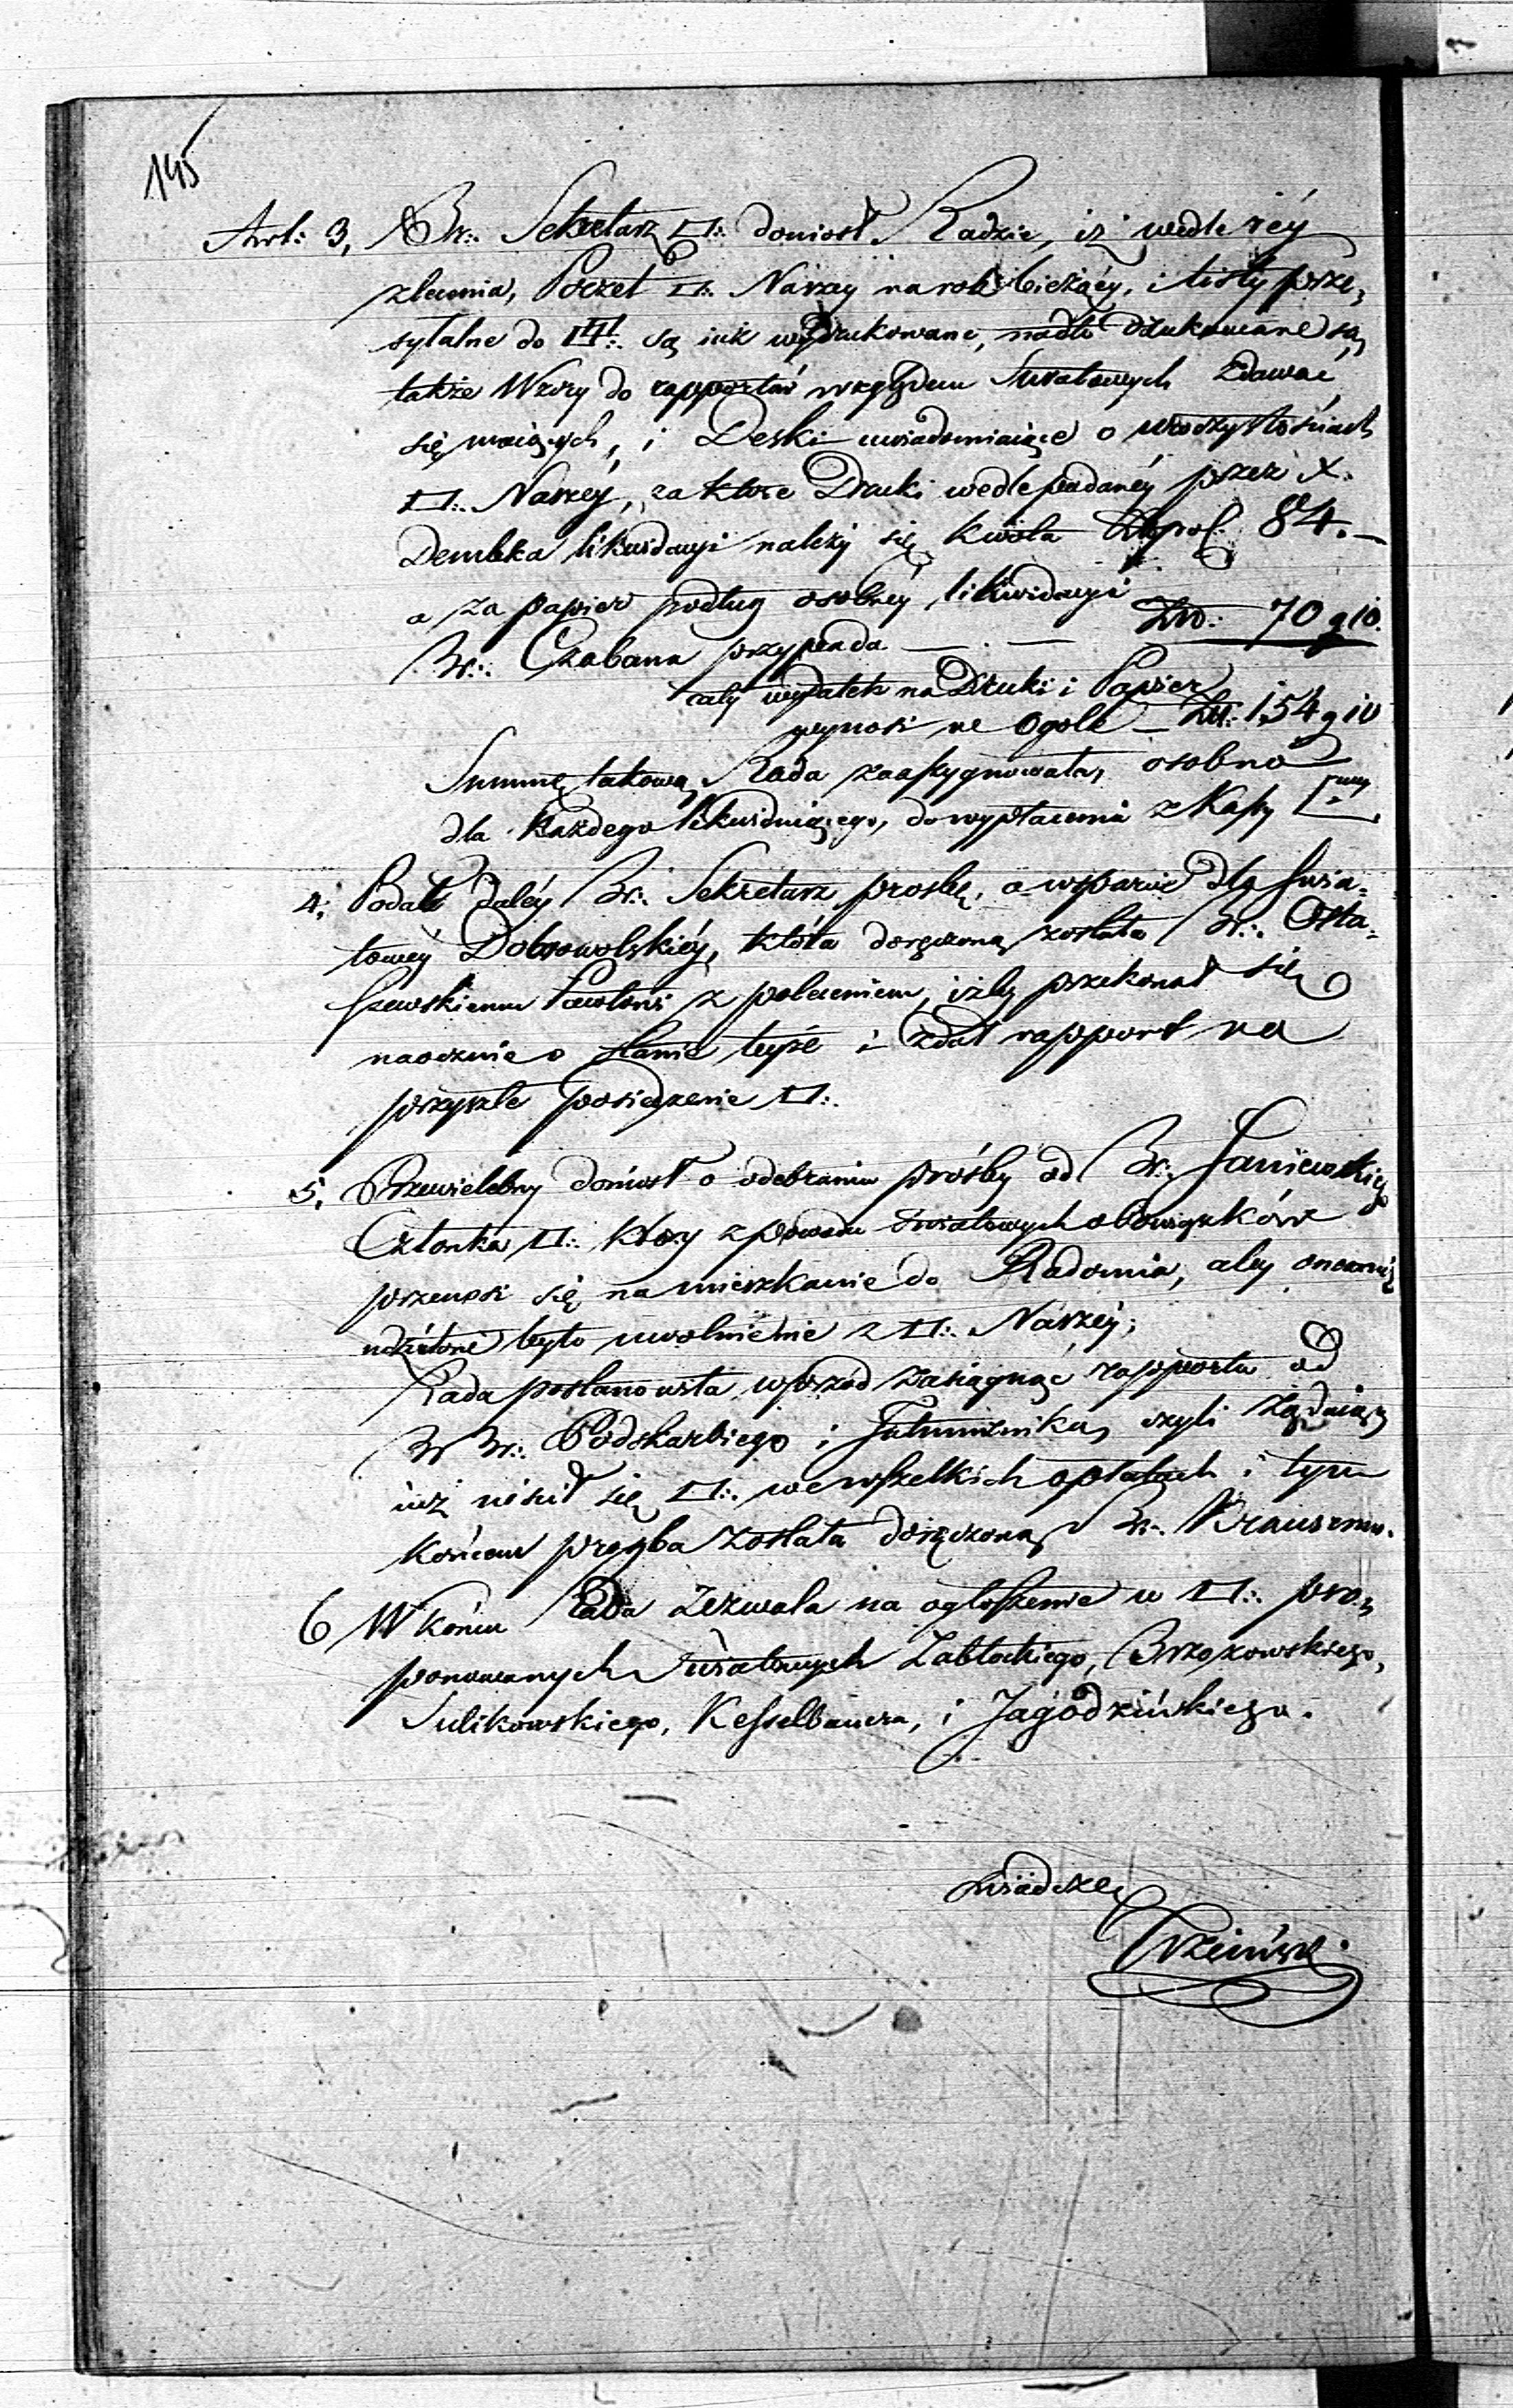 145
Art: 3, Br:. Sekretarz □:. doniosł Radzie, iż wedle iéy
zlecenia, Poczet □:. Naszey na rok bieżący, i listy prze,
syłalne do □□:. są iuż wydrukowane, nadto drukowane są
także Wzory do rapportów względem Światowych zdawać
się maiących, i Deski uwiadomiaiące o uroczystościach
□:. Naszéy, za które Druki wedle podanéy przez X.
Dembka likwidacyi należy się kwota Złpol. 84. –
a za papier podług osobnéy likwidacyi
Br:. Czabana przypada — . — Złp: 70 g 10.
cały wydatek na Druki i Papier
wynosi w Ogole – Złt: 154 g 10
Summę takową Rada zaassygnowała, osobno
dla Każdego likwiduiącego, do wypłacenia z Kassy □
4; Podał daléy Br:. Sekretarz prosbę, o wsparcie dla Świa=
towéy Dobrowolskiéy, która doręczoną została Br:. Osta=
szewskiemu z poleceniem, iżby przekonał się
naocznie o stanie teyże i zdał rapport na
przyszłe posiedzenie □:.
5, Przewielebny doniosł o odebraniu prośby od Br: Janiewskiego
Członka □:. który z powodu Światowych obowiązków
przenosi się na mieszkanie do Radomia, aby onemuż
udzielone było uwolnienie z □:. Naszéy;
Rada postanowiła wprzód zasiągnąć rapportu od
Br Br:. Podskarbiego i Jałmużnika, czyli żądaiący
iuż uiścił się □:. we wszelkich opłatach i tym
końcem prozba została doręczoną Br:. Brauszmu.
6 W końcu Rada zezwala na ogłoszenie w □:. pro,
ponowanych Światowych Zabłockiego, Brzozowskiego,
Sulikowskiego, Kesselbauera, i Jagodzińskiego.
Świadczę